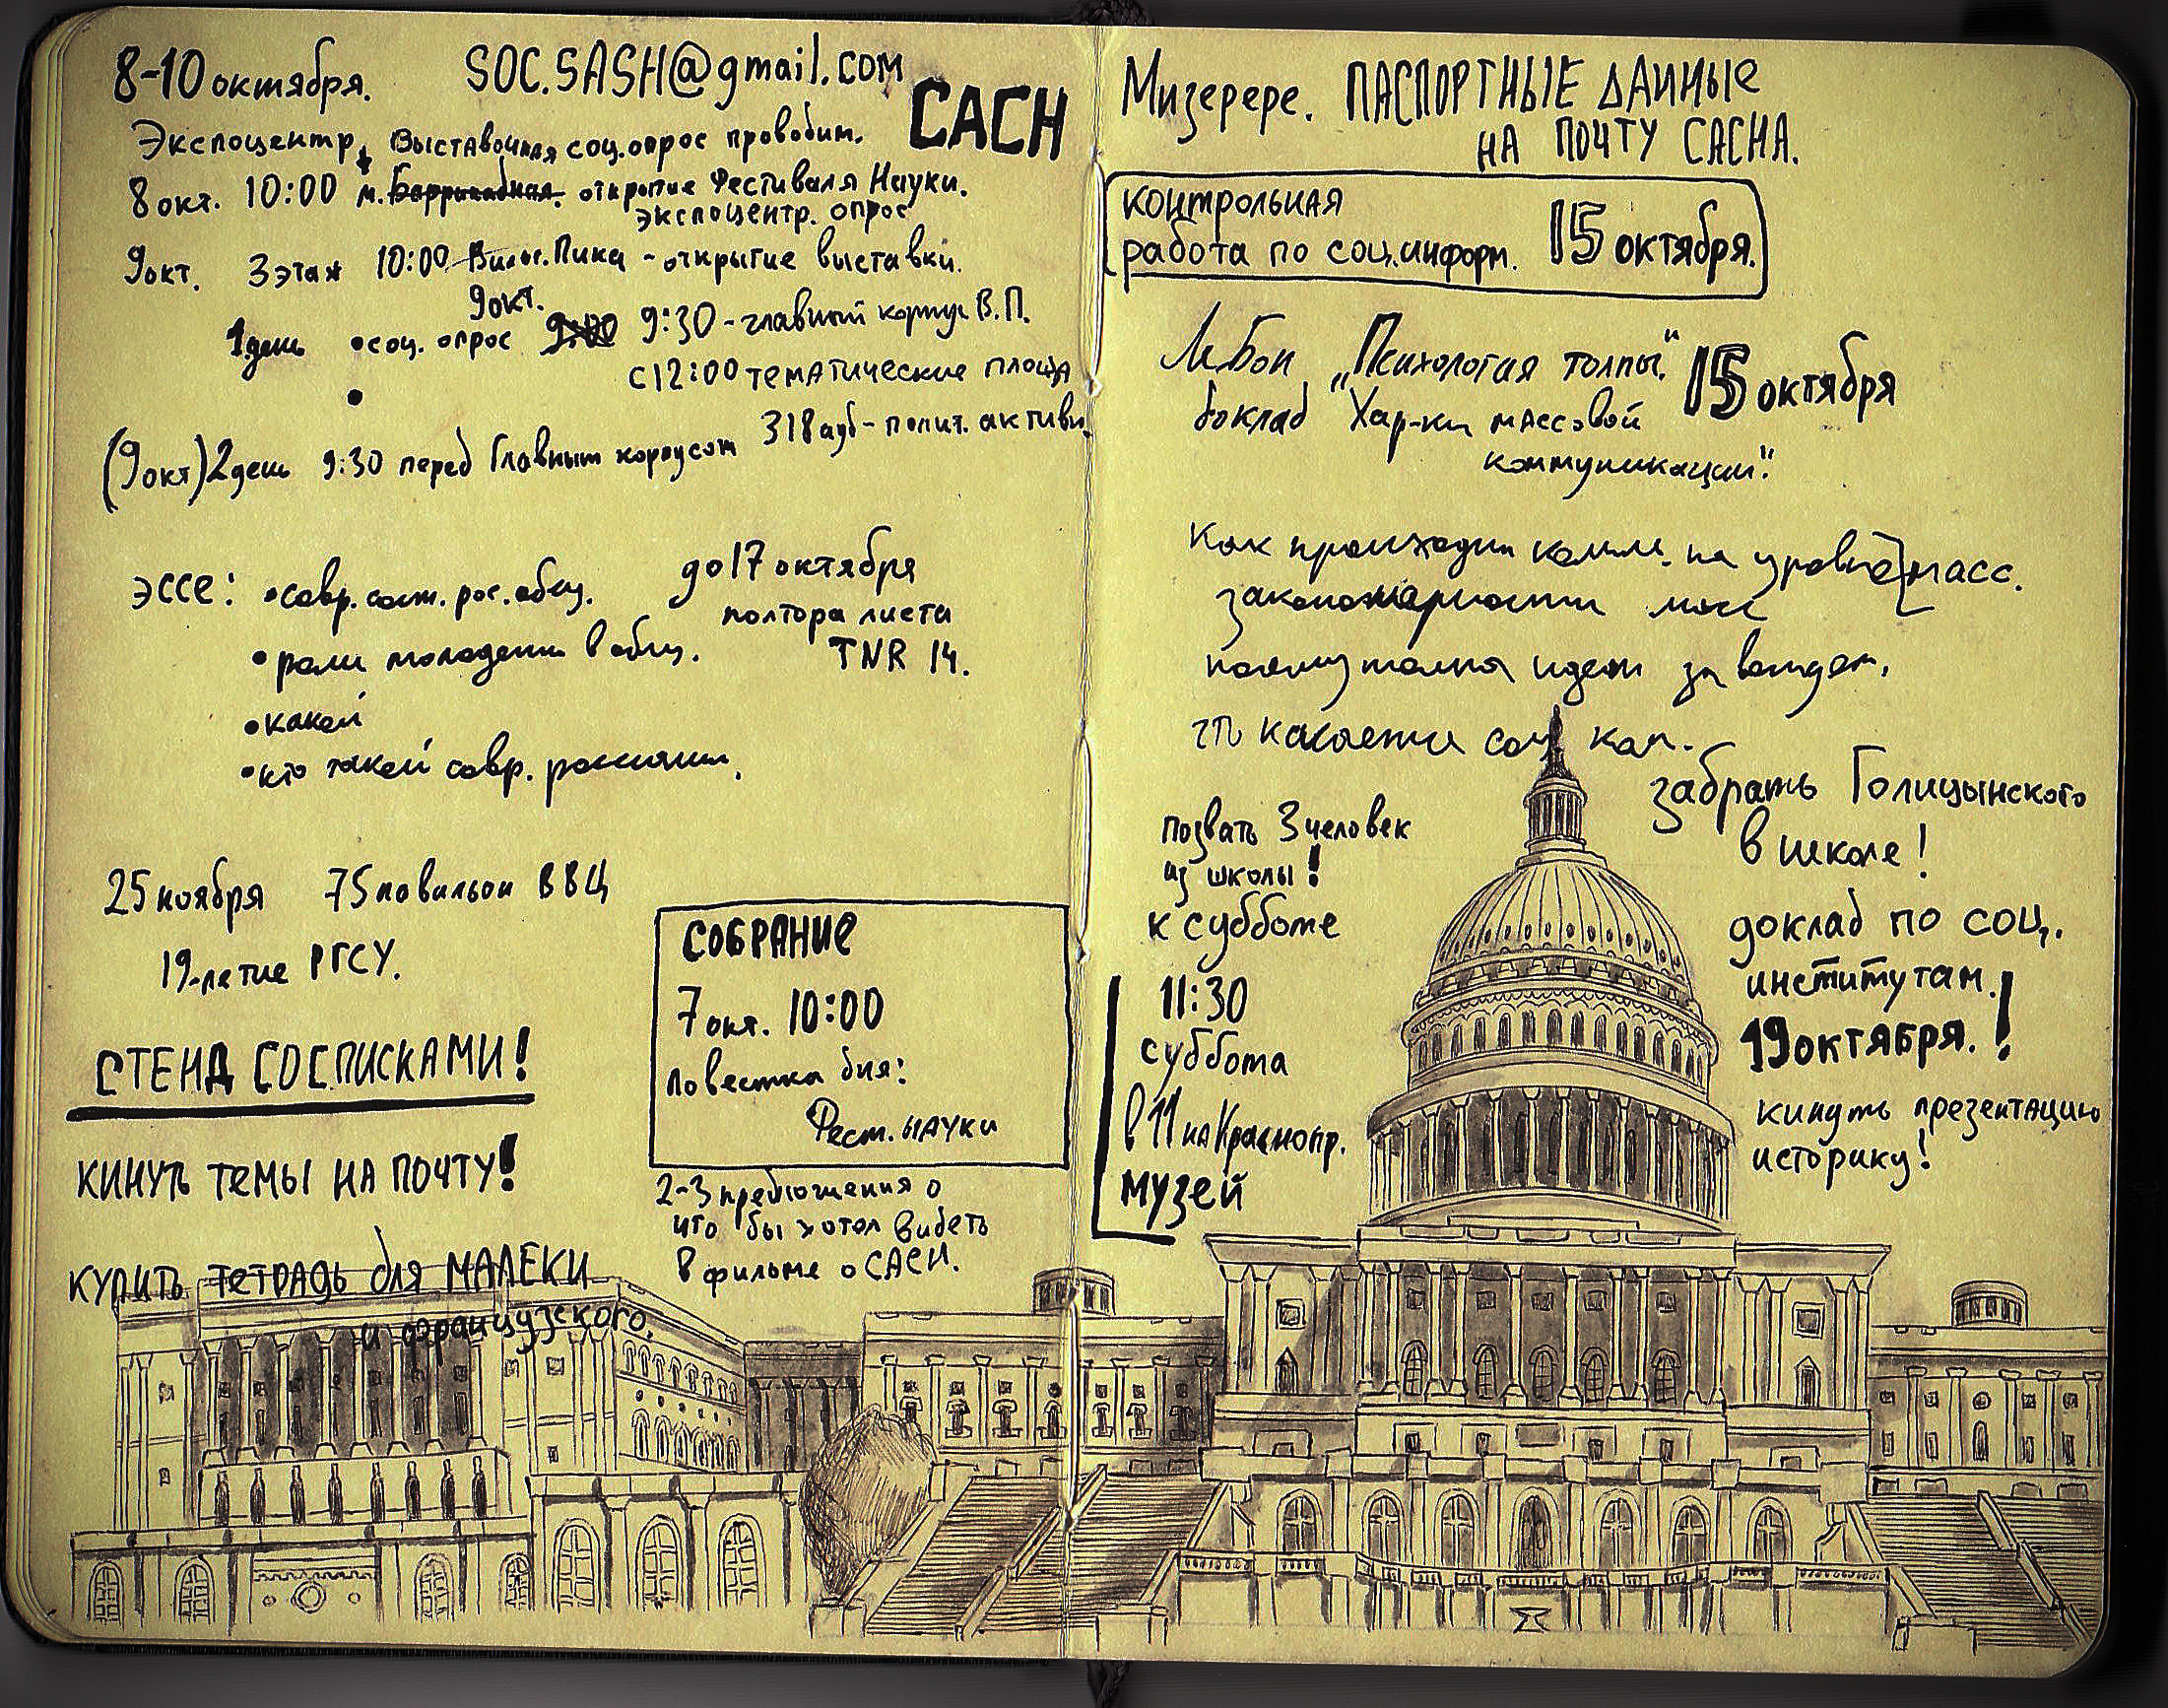 8-10 октября.
SOC.SASH@gmail.com
САСН
Экспоцентр, Выставочная соц.опрос проводим.
8 окт. 10:00 м. Баррикадная. открытие Фестиваля Науки.
экспоцентр. опрос
9окт. 3 этаж 10:00 Вильг.Пика - открытие выставки.
9окт.
1 день •соц. опрос 9:00 9:30 - главный корпус В.П.
с 12:00 тематические площа
•
(9 окт) 2 день 9:30 перед Главным корпусом 318 ауд - полит. активи
эссе: •совр. сост. рос. общ.
до 17 октября
полтора листа
TNR 14.
•роли молодежи в общ.
•какой
•кто такой совр. россиянин.
25 ноября 75 павильон ВВЦ
19-летие РГСУ.
СТЕНД СО СПИСКАМИ!
КИНУТЬ ТЕМЫ НА ПОЧТУ!
КУПИТЬ ТЕТРАДЬ для МАЛЕКИ
и французского.
СОБРАНИЕ
7 окт. 10:00
повестка дня:
Фест. НАУКИ
2-3 предложения о
что бы хотел видеть
в фильме о САСН.
Мизерере. ПАСПОРТНЫЕ ДАННЫЕ
НА ПОЧТУ САСНА.
контрольная
работа по соц.информ. 15 октября.
ЛеБон „Психология толпы." 15 октября
доклад "Хар-ки массовой
коммуникации".
Как происходит комм. на уровне масс.
закономерности масс
почему толпа идет за вождем.
что касается соц. ком.
позвать 3 человек
из школы!
к субботе
11:30
суббота
в 11 на Краснопр.
музей
забрать Голицынского
в школе!
доклад по соц.
институтам.!
19 октября.
кинуть презентацию
историку!